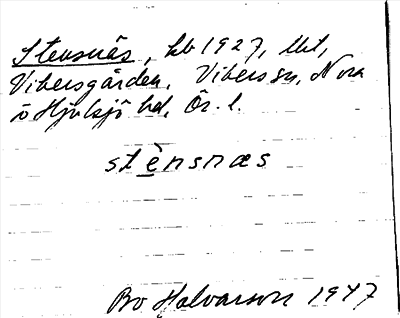 Stensnäs, kb 1927, lht,
Vibersgården, Vibers sn, Nora
o Hjulsjö hd, Ör. l.
stènsnæs
Bo Halvarson 1947